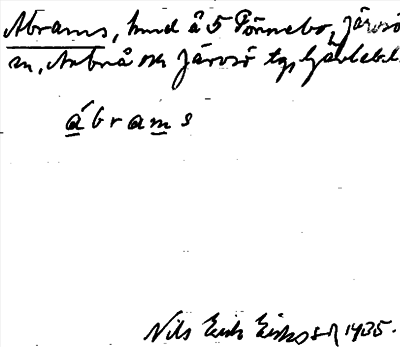 Abrams, hmd å 5 Tönnebo, Järvsö
sn, Arbrå och Järvsö tgs Gävlebl.
ábrams
Nils Erik Eriksson 1935.